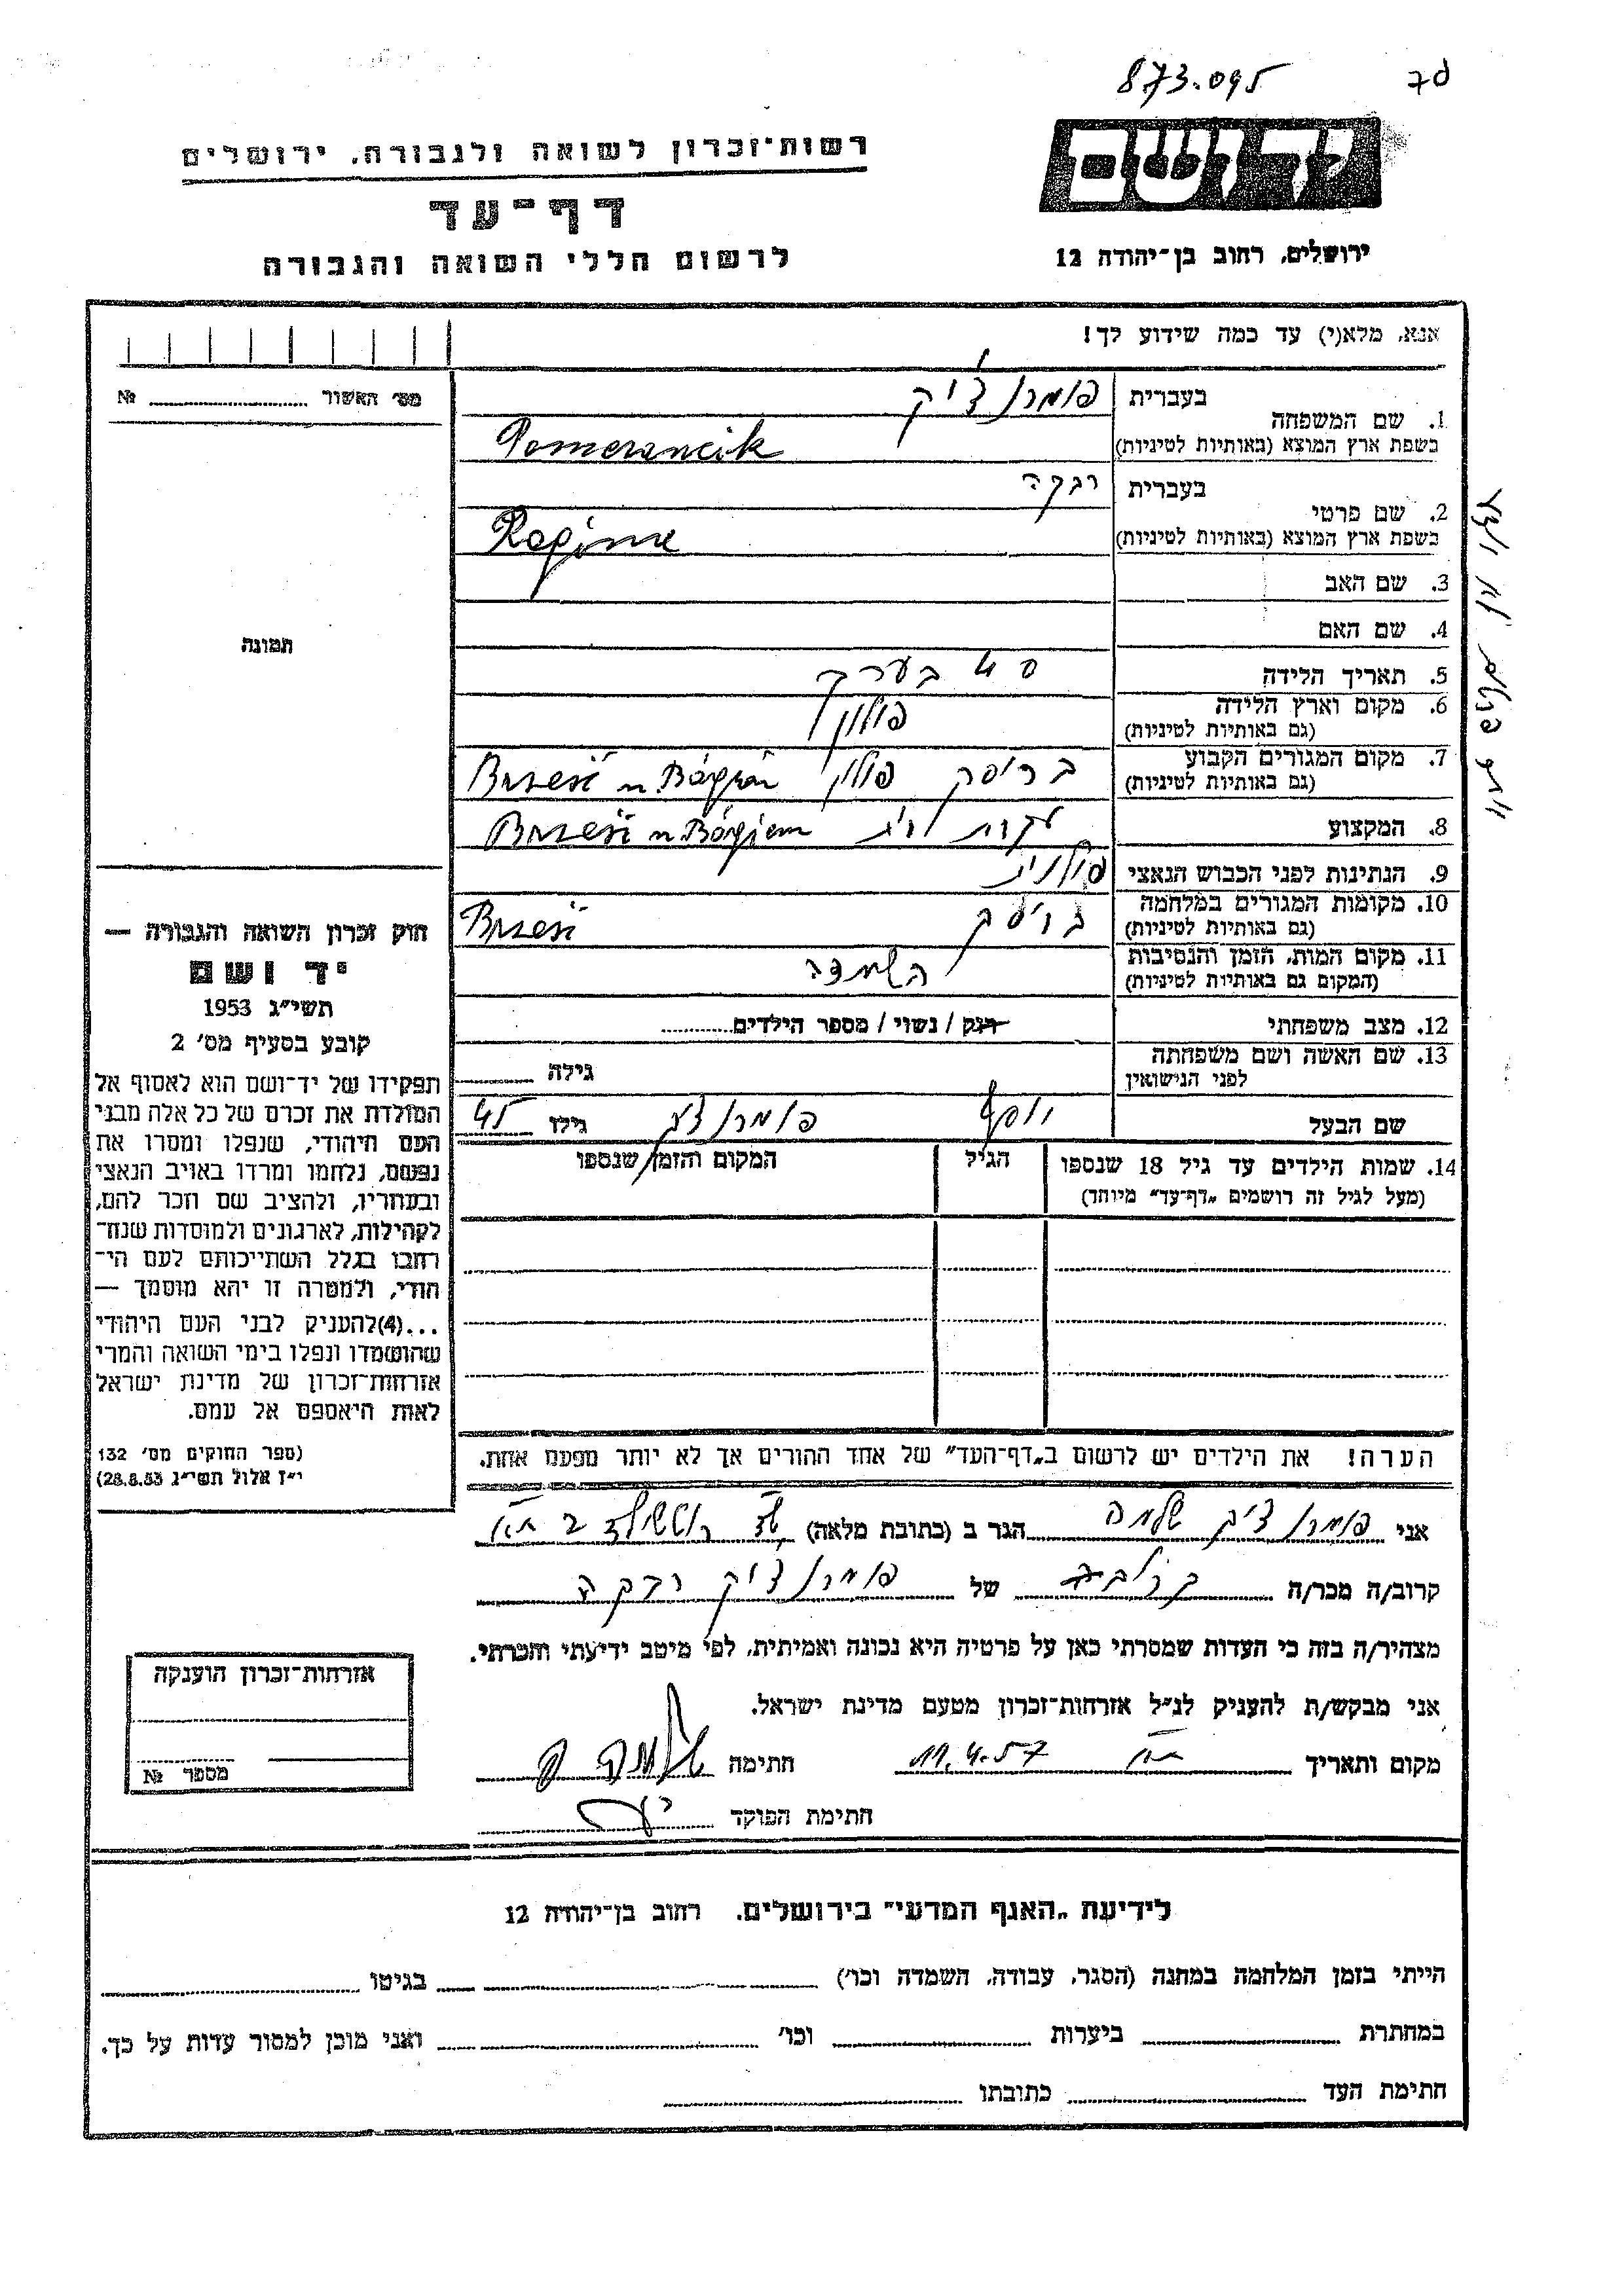 873.095
רשות־זכרון לשואה ולגבורה, ירושלים
דף־עד
לרשום חללי השואה והגבורה
ירושלים, רחוב בן־יהודה 12
אנא, מלא(י) עד כמה שידוע לך!
מס׳ האשור № 
1. שם המשפחה
בעברית פומרנציק
בשפת ארץ המוצא (באותיות לטיניות) Pomerancik
2. שם פרטי
בעברית רבקה
בשפת ארץ המוצא (באותיות לטיניות)
3. שם האב
4. שם האם
תמונה
5. תאריך הלידה בערך
6. מקום וארץ הלידה פולין
(גם באותיות לטיניות)
7. מקום המגורים הקבוע בריסק פולין Brześć n
(גם באותיות לטיניות)
8. המקצוע Brześć n Bógiem
9. הנתינות לפני הכבוש הנאצי פולנית
10. מקומות המגורים במלחמה בריסק Brześć
(גם באותיות לטיניות)
11. מקום המות, הזמן והנסיבות השמדה
(המקום גם באותיות לטיניות)
12. מצב משפחתי רוק / נשוי / מספר הילדים
13. שם האשה ושם משפחתה
לפני הנישואין
גילה
שם הבעל יוסף גילו 45
14. שמות הילדים עד גיל 18 שנספו הגיל המקום והזמן שנספו
(מעל לגיל זה רושמים „דף־עד״ מיוחד)
הערה! את הילדים יש לרשום ב„דף־העד״ של אחד ההורים אך לא יותר מפעם אחת.
חוק זכרון השואה והגבורה —
יד ושם
תשי״ג 1953
קובע בסעיף מס׳ 2
תפקידו של יד־ושם הוא לאסוף אל
המולדת את זכרם של כל אלה מבני
העם היהודי, שנפלו ומסרו את
נפשם, נלחמו ומרדו באויב הנאצי
ובעוזריו, ולהציב שם וזכר להם,
לקהילות, לארגונים ולמוסדות שנח־
רבו בגלל השתייכותם לעם הי־
הודי, ולמטרה זו יהא מוסמך —
...(4)להעניק לבני העם היהודי
שהושמדו ונפלו בימי השואה והמרי
אזרחות־זכרון של מדינת ישראל
לאות היאספם אל עמם.
(ספר החוקים מס׳ 132
י״ז אלול תשי״ג 28.8.53)
אני פומרנציק שלמה הגר ב (כתובת מלאה)
קרוב/ה מכר/ה של פומרנציק רבקה
מצהיר/ה בזה כי העדות שמסרתי כאן על פרטיה היא נכונה ואמיתית, לפי מיטב ידיעתי והכרתי.
אני מבקש/ת להעניק לנ״ל אזרחות־זכרון מטעם מדינת ישראל.
מקום ותאריך 11.4.57 חתימה
חתימת הפוקד
אזרחות־זכרון הוענקה
מספר №
לידיעת „האגף המדעי״ בירושלים, רחוב בן־יהודה 12
הייתי בזמן המלחמה במחנה (הסגר, עבודה, השמדה וכו׳) בגיטו
במחתרת ביערות וכו׳ ואני מוכן למסור עדות על כך.
חתימת העד כתובתו